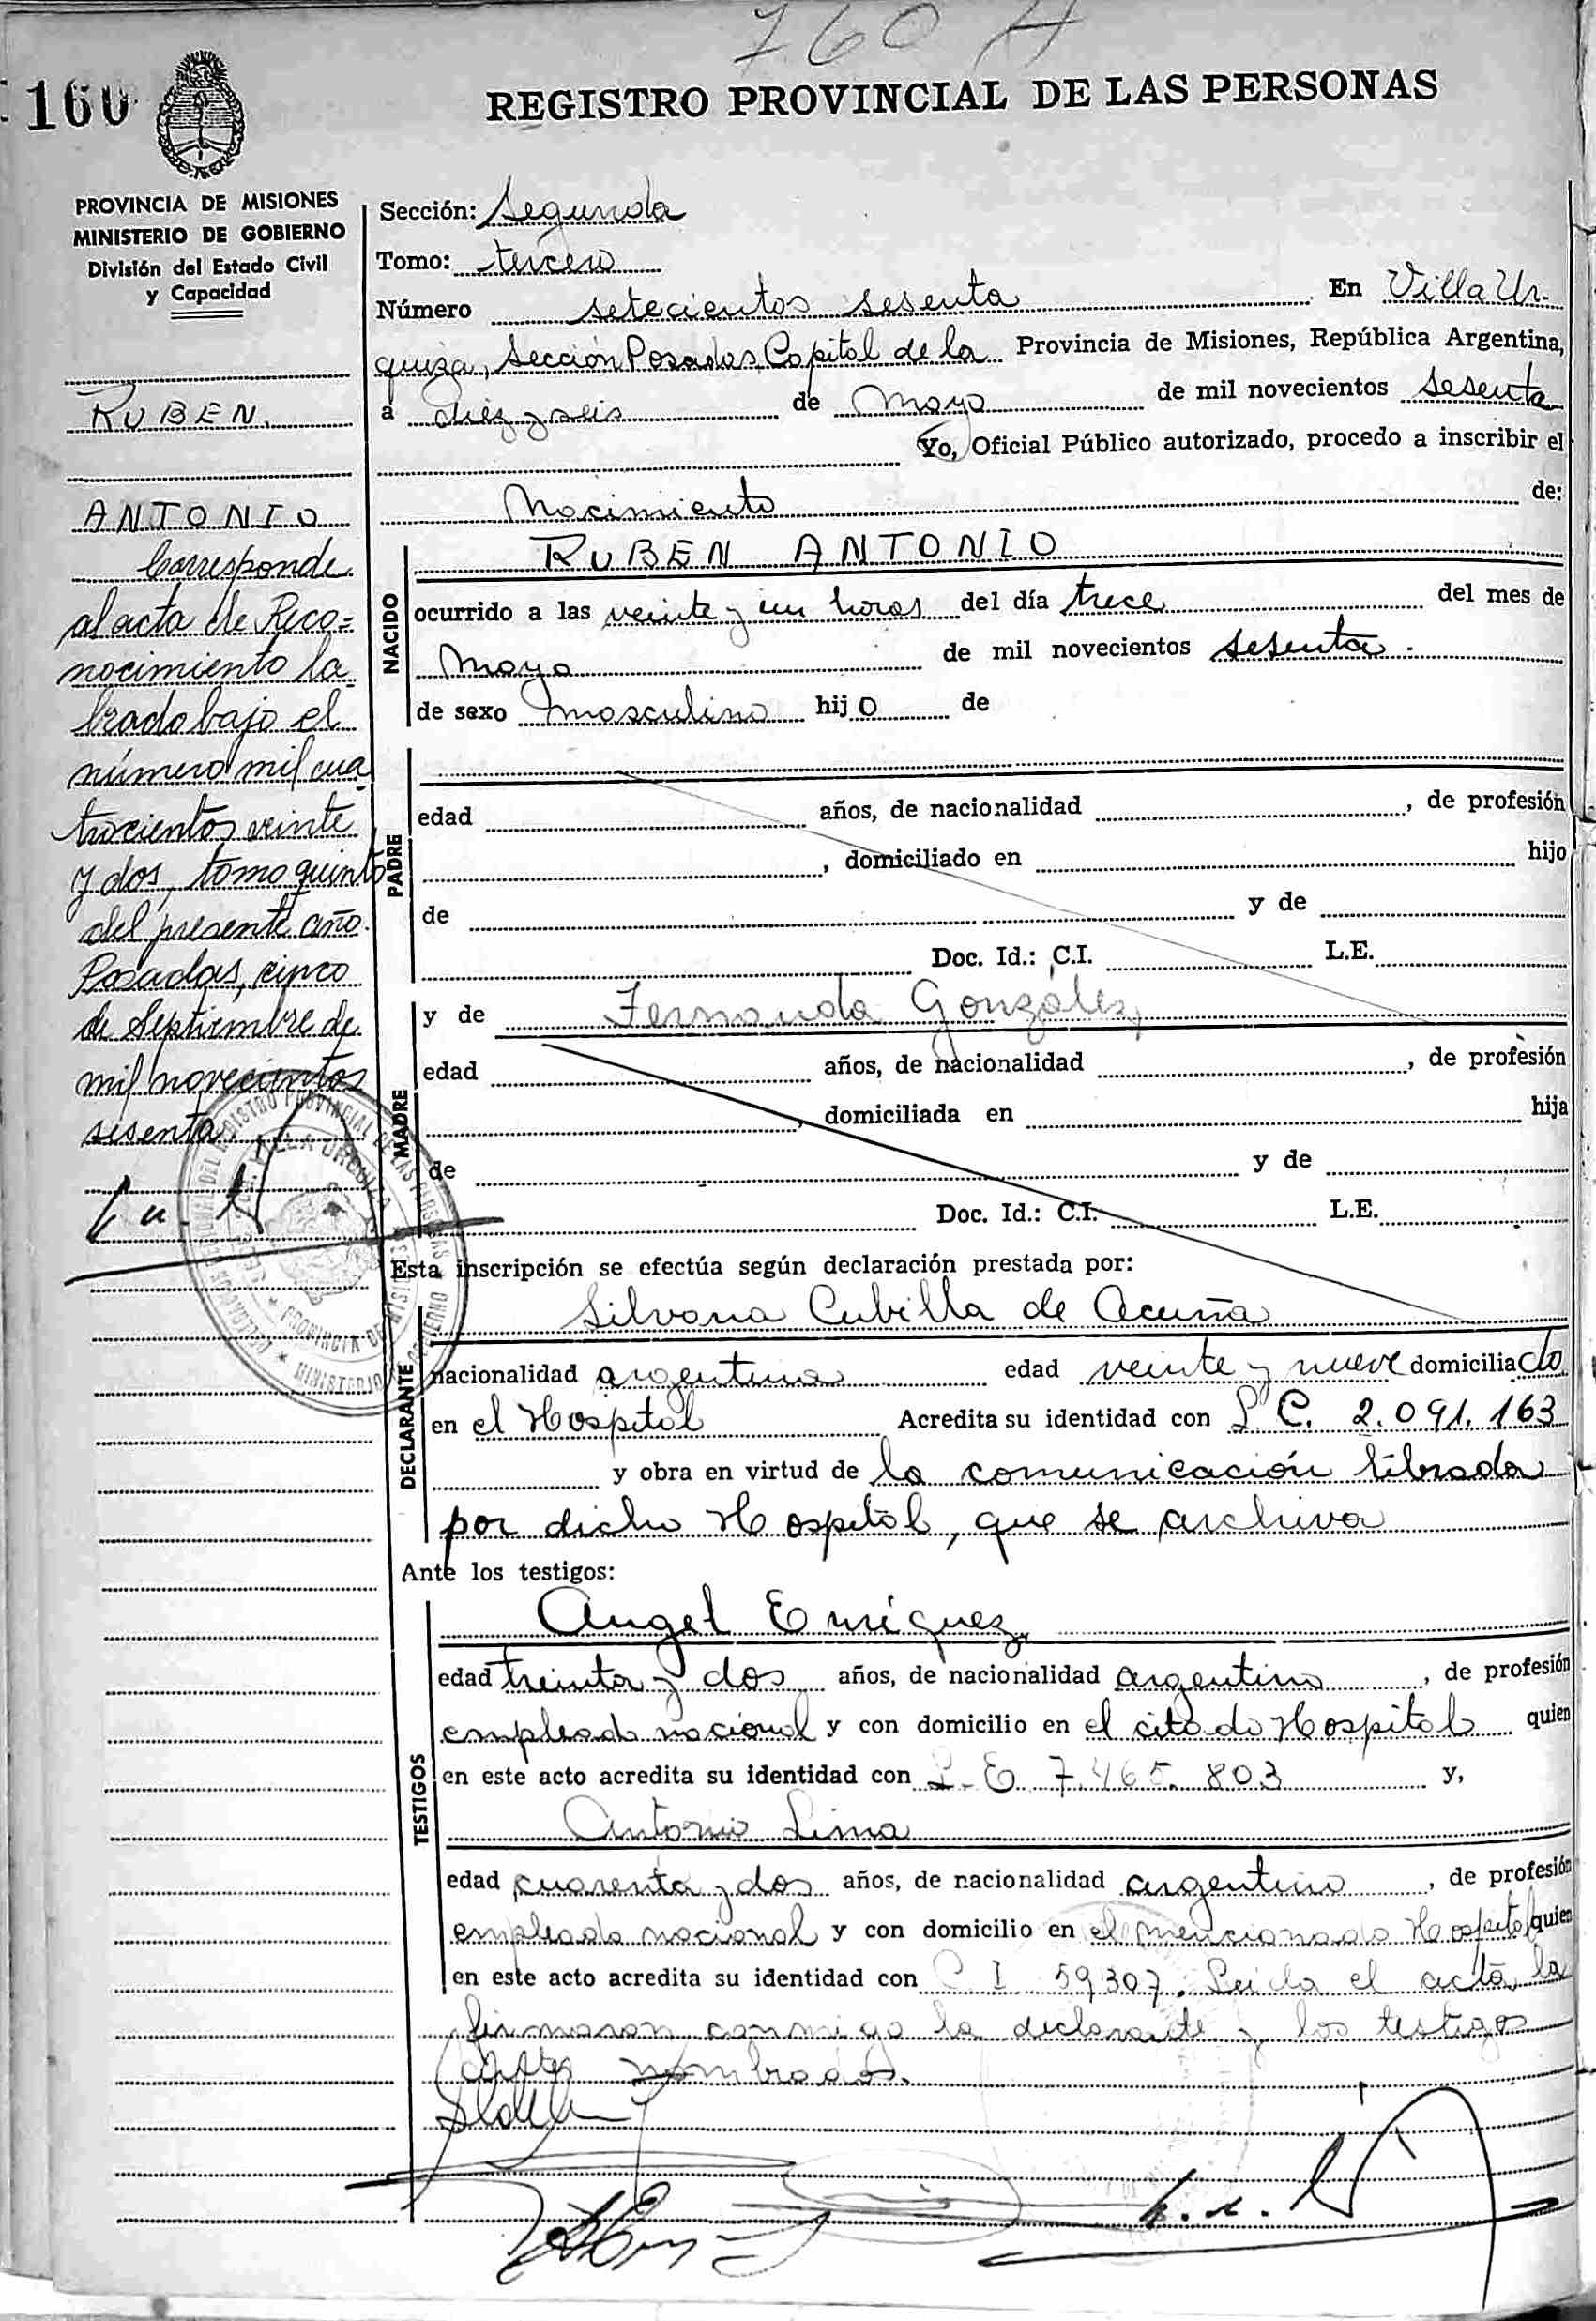 760 A
160
REGISTRO PROVINCIAL DE LAS PERSONAS
PROVINCIA DE MISIONES
MINISTERIO DE GOBIERNO
División del Estado Civil
y Capacidad
RUBEN
ANTONIO
Corresponde
al acta de Reco=
nocimiento la
brado bajo el
número mil cua
trocientos veinte
y dos, tomo quinto
del presente año.
Posadas, cinco
de Septiembre de
mil novecientos
sesenta.
Sección: Segunda
Tomo: tercero
Número setecientos sesenta En Villa Ur-
quiza, Sección Posadas, Capital de la Provincia de Misiones, República Argentina,
a diez y seis de Mayo de mil novecientos sesenta
Yo, Oficial Público autorizado, procedo a inscribir el
Nacimiento de:
NACIDO
RUBEN ANTONIO
ocurrido a las veinte y un horas del día trece del mes de
Mayo de mil novecientos sesenta.
de sexo masculino hijo de
PADRE
edad años, de nacionalidad , de profesión
, domiciliado en hijo
de y de
Doc. Id.: C.I. L.E.
MADRE
y de Fernanda González,
edad años, de nacionalidad , de profesión
, domiciliada en hija
de y de
Doc. Id.: C.I. L.E.
Esta inscripción se efectúa según declaración prestada por:
DECLARANTE
Silvana Cubilla de Acuña
nacionalidad argentina edad veinte y nueve domiciliado
en el Hospital Acredita su identidad con L C. 2.091.163
y obra en virtud de la comunicación librada
por dicho Hospital, que se archiva
Ante los testigos:
TESTIGOS
Angel Enriquez,
edad treinta y dos años, de nacionalidad argentino , de profesión
empleado nacional y con domicilio en el citado Hospital quien
en este acto acredita su identidad con L-E 7.465.803 y,
Antonio Lima
edad cuarenta y dos años, de nacionalidad argentino , de profesión
empleado nacional y con domicilio en el mencionado Hospital quien
en este acto acredita su identidad con C I 59307. Leida el acta, la
firmaron conmigo la declarante y los testigos
antes nombrados.